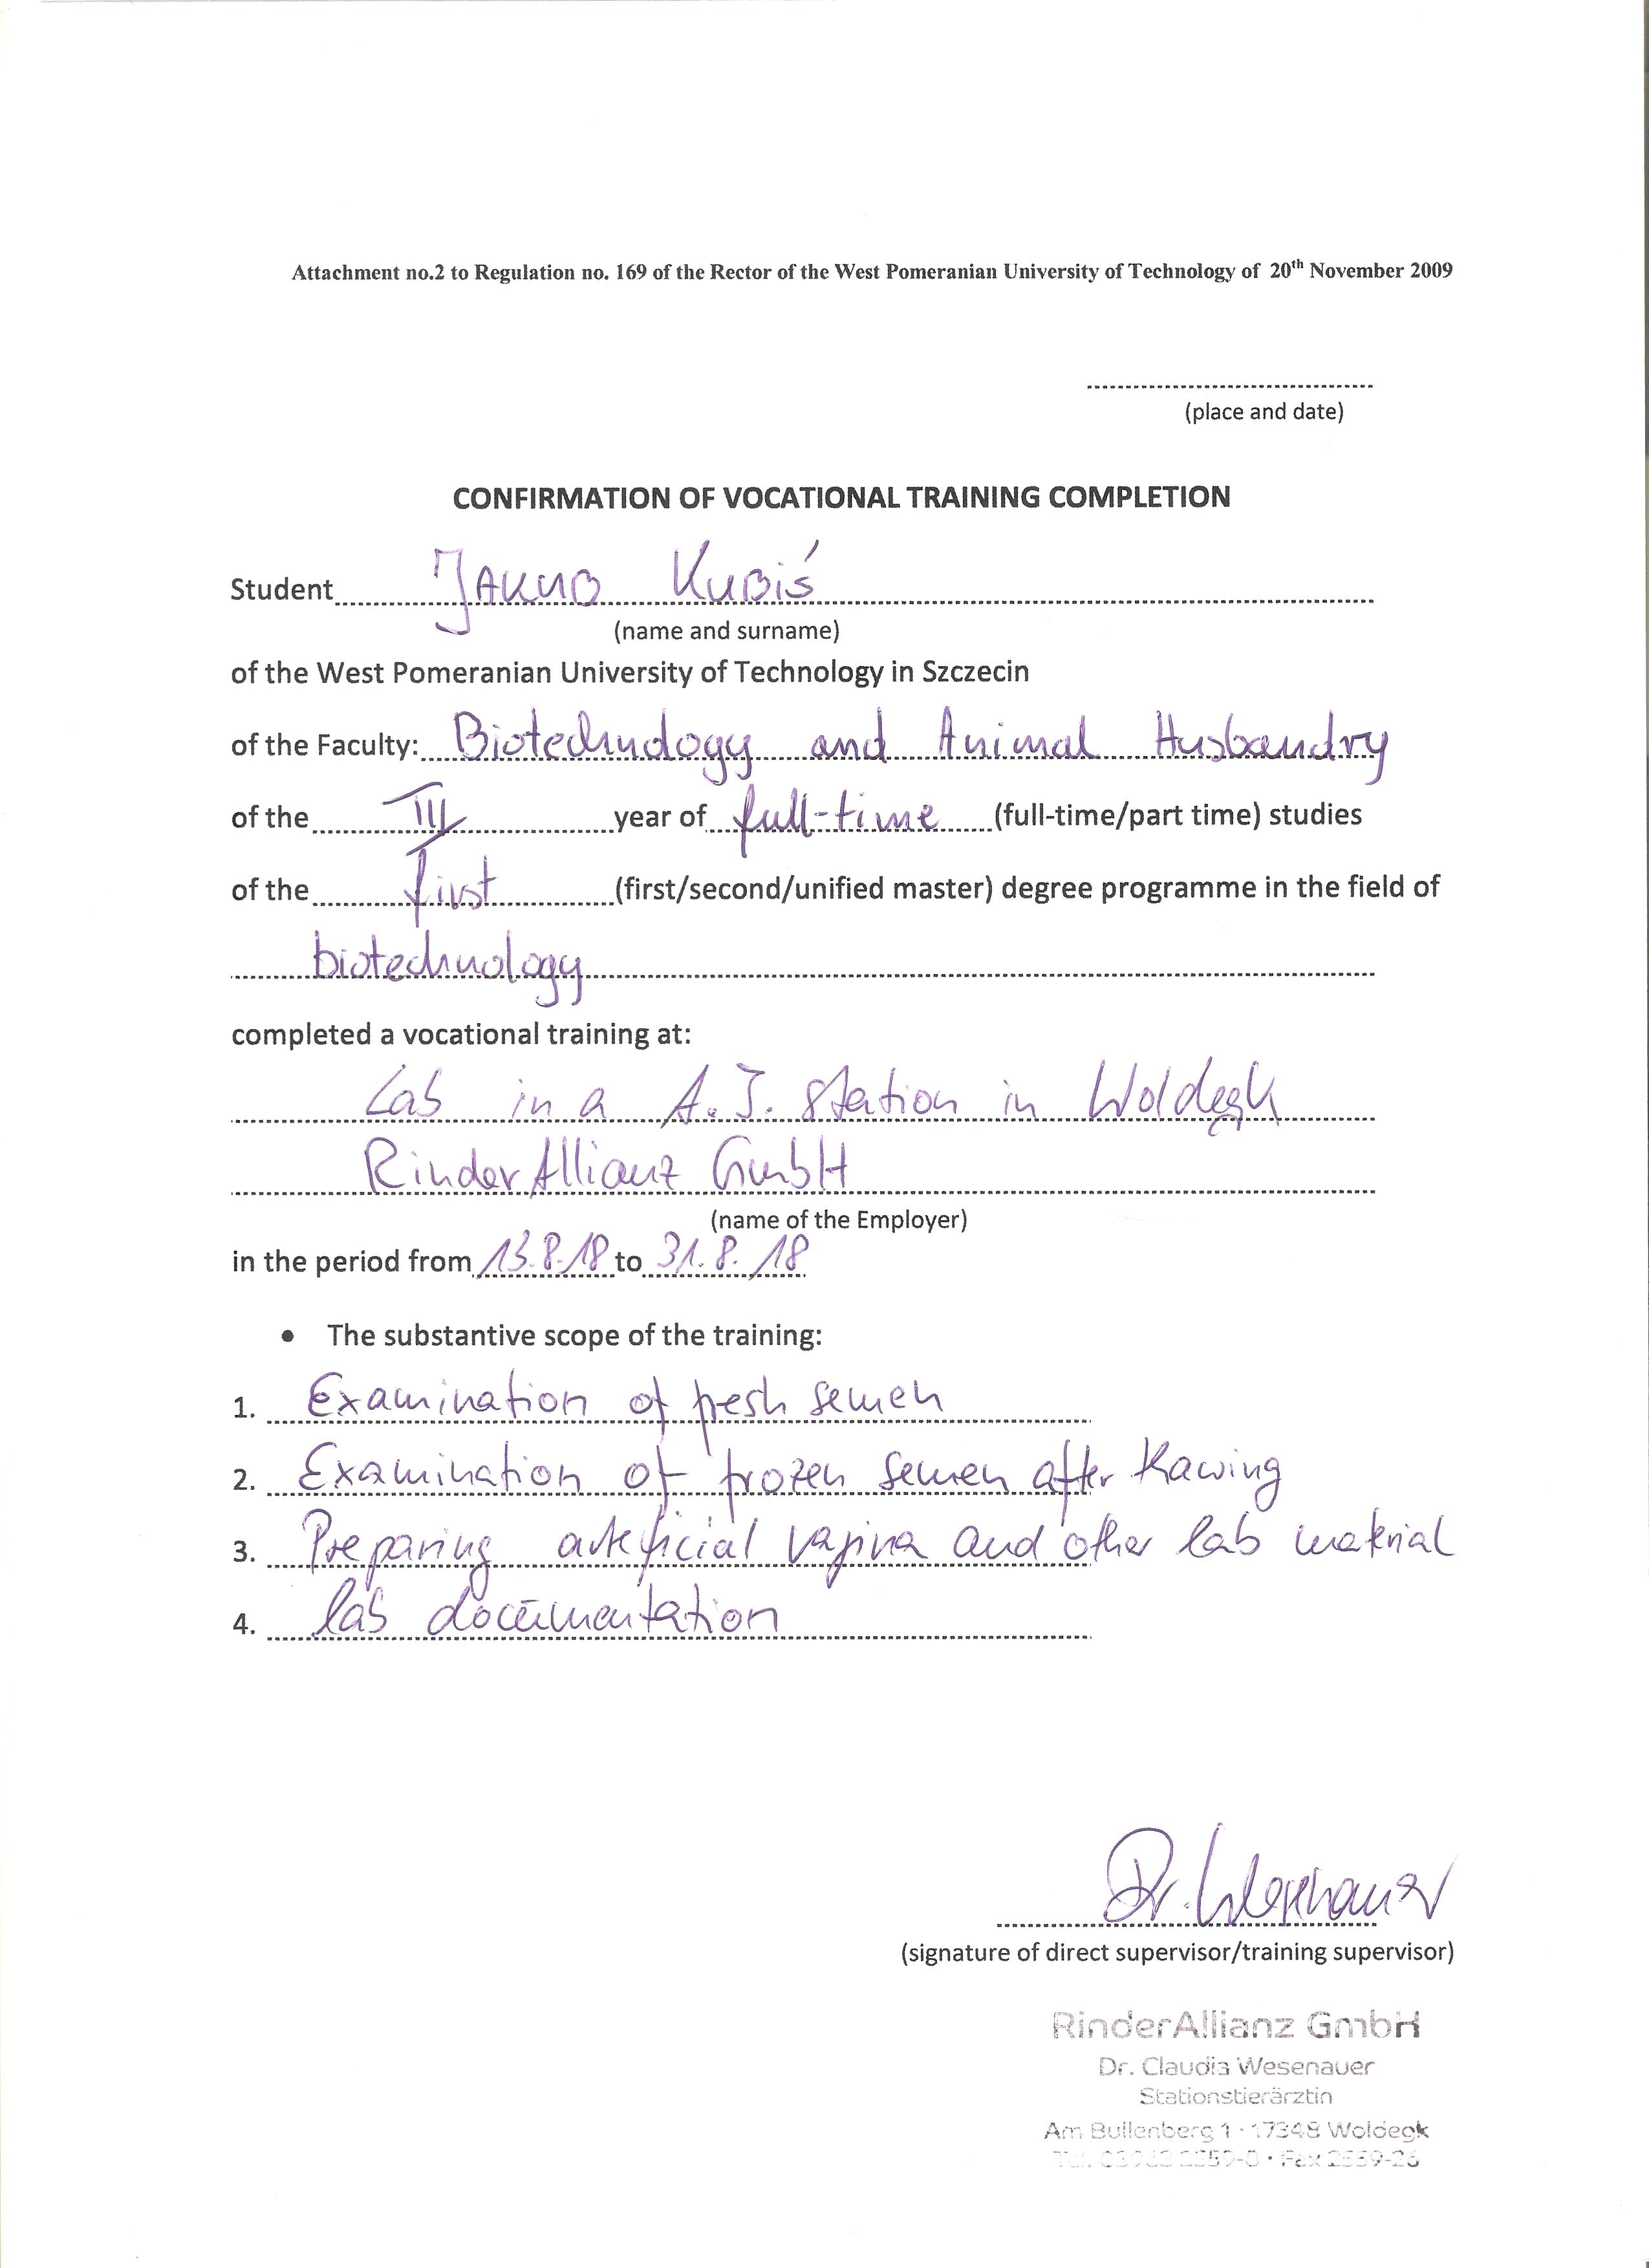 Attachment no.2 to Regulation no. 169 of the Rector of the West Pomeranian University of Technology of 20th November 2009
(place and date)
CONFIRMATION OF VOCATIONAL TRAINING COMPLETION
Student Jakub Kubiś
(name and surname)
of the West Pomeranian University of Technology in Szczecin
of the Faculty: Biotechnology and Animal Husbandry
of the III year of full-time (full-time/part time) studies
of the first (first/second/unified master) degree programme in the field of
biotechnology
completed a vocational training at:
Lab in a A.I. Station in Woldegk
RinderAllianz GmbH
(name of the Employer)
in the period from 13.8.18 to 31.8.18
• The substantive scope of the training:
1. Examination of fresh semen
2. Examination of frozen semen after thawing
3. Preparing arteficial vagina and other lab material
4. lab documentation
Dr. Wesenauer
(signature of direct supervisor/training supervisor)
RinderAllianz GmbH
Dr. Claudia Wesenauer
Stationstierärztin
Am Bullenberg 1 · 17348 Woldegk
Tel. 2559-0 · Fax 2559-26